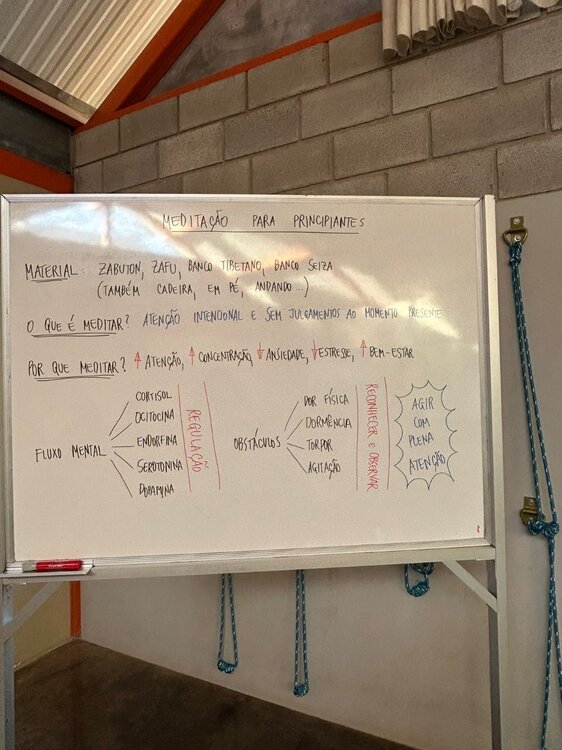 MEDITAÇÃO PARA PRINCIPIANTES
MATERIAL: ZABUTON, ZAFU, BANCO TIBETANO, BANCO SEIZA
(TAMBÉM CADEIRA, EM PÉ, ANDANDO...)
O QUE É MEDITAR? ATENÇÃO INTENCIONAL E SEM JULGAMENTOS AO MOMENTO PRESENTE
POR QUE MEDITAR? ↑ ATENÇÃO, ↑ CONCENTRAÇÃO, ↓ ANSIEDADE, ↓ ESTRESSE, ↑ BEM-ESTAR
FLUXO MENTAL
CORTISOL
OCITOCINA
ENDORFINA
SEROTONINA
DOPAMINA
REGULAÇÃO
OBSTÁCULOS
DOR FÍSICA
DORMÊNCIA
TORPOR
AGITAÇÃO
RECONHECER E OBSERVAR
AGIR
COM
PLENA
ATENÇÃO